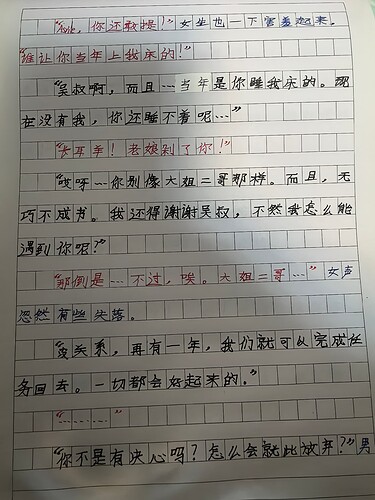 “他，你还敢提！”女生也一下害羞起来。
“谁让你当年上我床的！”
“吴叔啊，而且…当年是你睡我床的。现
在没有我，你还睡不着呢…”
“大耳羊！老娘剁了你！”
“哎呀…你别像大姐二哥那样。而且，无
巧不成书。我还得谢谢吴叔，不然我怎么能
遇到你呢？”
“那倒是…不过，唉。大姐二哥…”女声
忽然有些失落。
“没关系，再有一年，我们就可以完成任
务回去。一切都会好起来的。”
“……”
“你不是有决心吗？怎么会就此放弃？”男